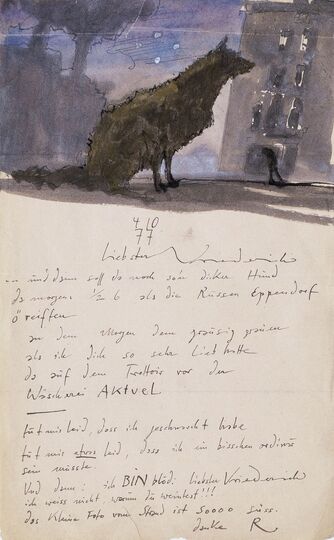 4 10
77
Liebster Vriederich
und dann soll da noch sein dicker Hund
da morgens ½ 6 als die Russen Eppendorf
an dem Morgen dem grausig grauen
als ik dich so sehr lieb hatte
da auf dem Trottoir vor der
Wäscherei AKTUEL
tut mir leid, dass ich gequatscht habe
tut mir etwas leid, dass ich ein bisschen
sein müsste
Und dann: ich BIN blöd: liebster Vriederich
ich weiss nicht, warum du weintest!!!
das kleine Foto vom Hund ist soooo süss.
danke R